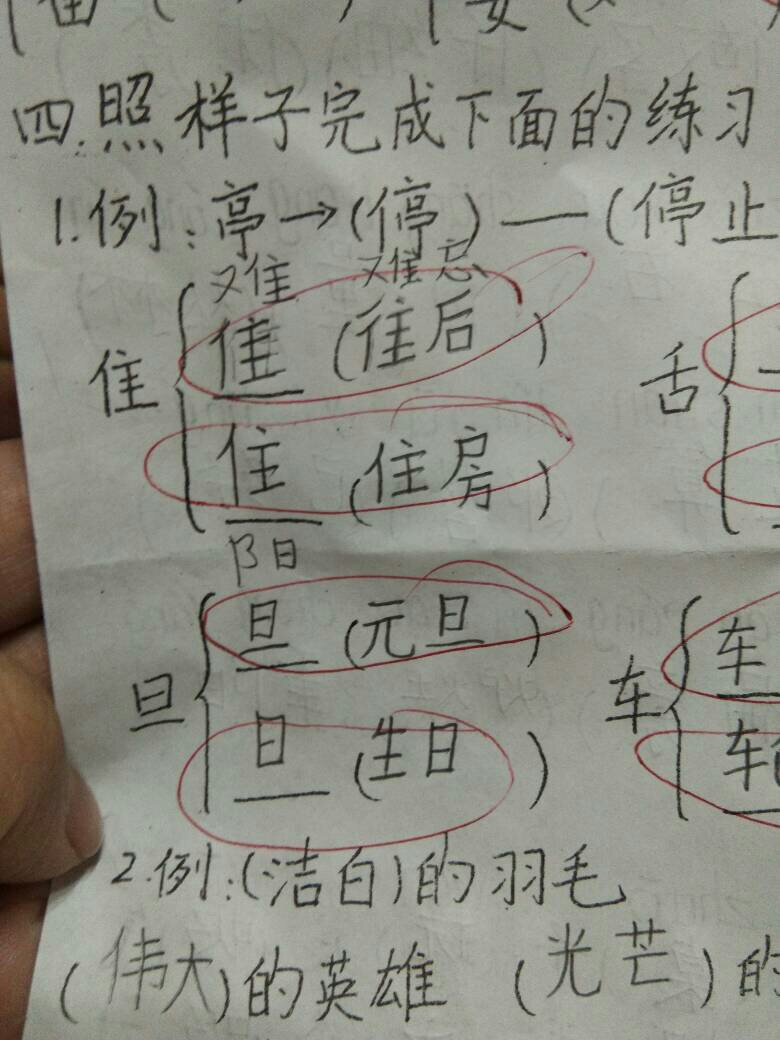 四.照样子完成下面的练习
1.例:亭→(停)—(停止
难 难忘
隹 隹 (往后)
住 (住房) 舌
阳
旦 旦 (元旦) 车
日 (生日) 车
2.例:(洁白)的羽毛
(伟大)的英雄 (光芒)的